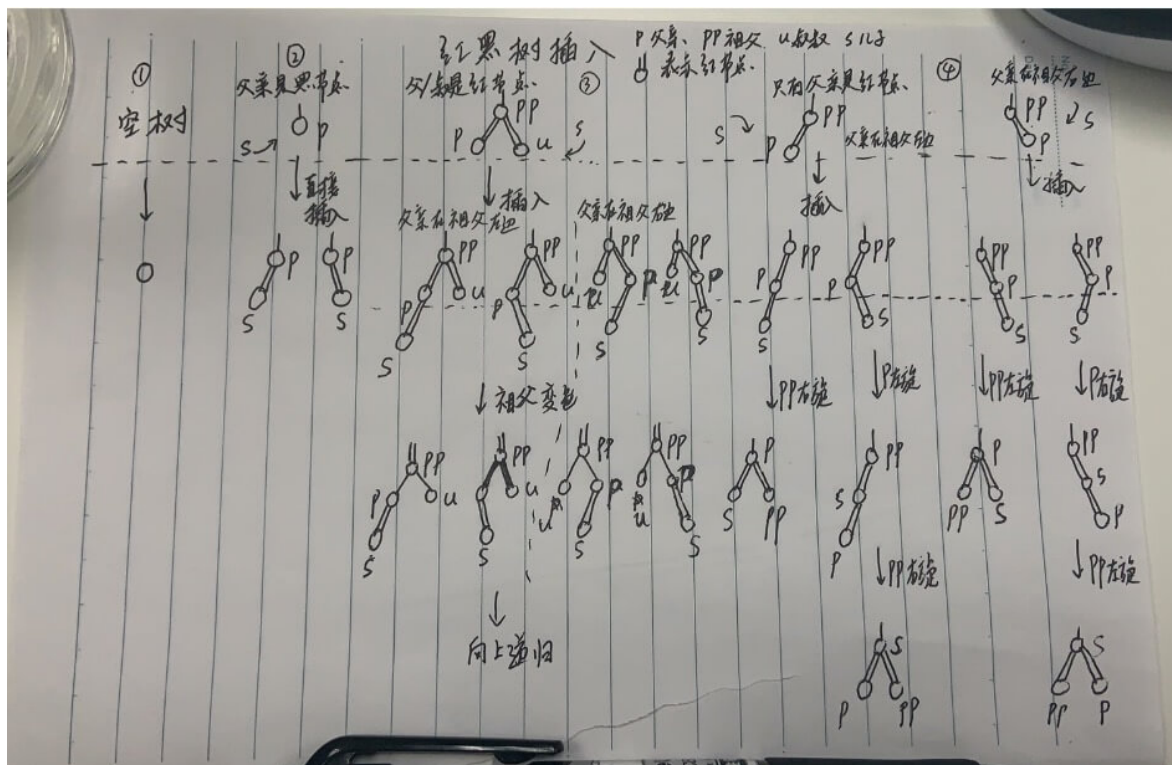 红黑树插入
P父亲、PP祖父 u叔叔 S儿子
表示红节点.
①
空树
②
父亲是黑节点
P
S
直接
插入
P
S
P
S
③
父/叔是红节点.
PP
P
u
S
插入
父亲在祖父左边
父亲在祖父右边
PP
P
u
S
PP
P
u
S
PP
u
P
S
PP
u
P
S
祖父变色
PP
P
u
S
PP
u
S
PP
u
P
S
PP
u
P
S
向上递归
④
只有父亲是红节点.
S
PP
P
父亲在祖父左边
插入
PP
P
S
PP
P
S
PP右旋
P左旋
P
S
PP
PP
S
P
PP右旋
S
P
PP
父亲在祖父右边
PP
P
S
插入
PP
P
S
PP
P
S
PP左旋
P右旋
P
PP
S
PP
S
P
PP左旋
S
PP
P